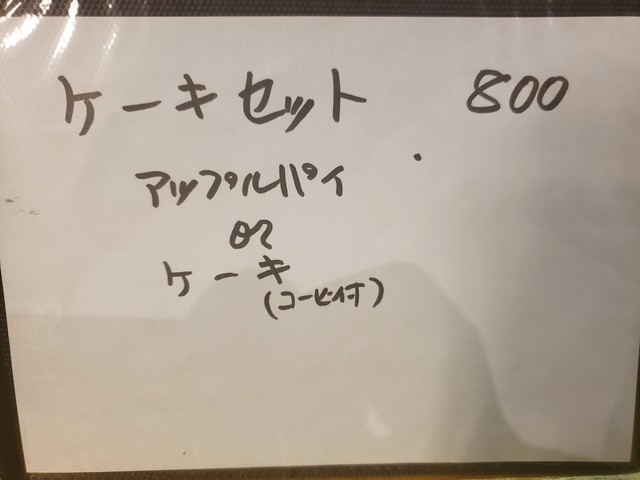 ケーキセット 800
アップルパイ
or
ケーキ
(コーヒー付)